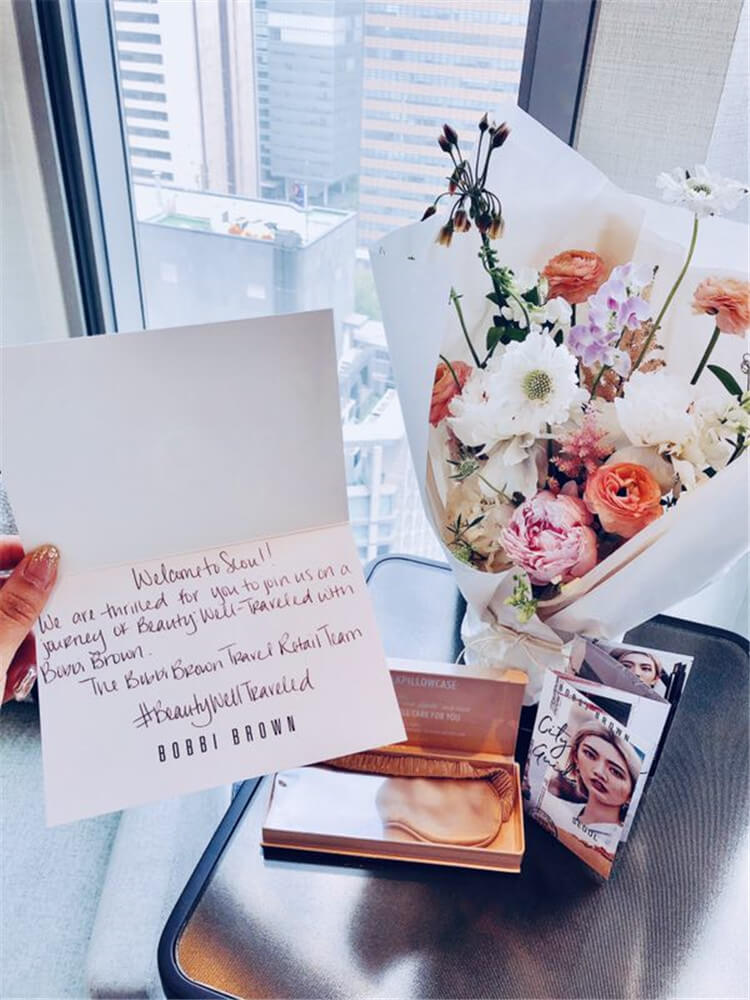 Welcome to Seoul!!
We are thrilled for you to join us on a
journey of Beauty Well-Traveled with
Bobbi Brown.
The Bobbi Brown Travel Retail Team
#BeautyWellTraveled
BOBBI BROWN
PILLOWCASE
CARE FOR YOU
BOBBI BROWN
City
Guide
SEOUL